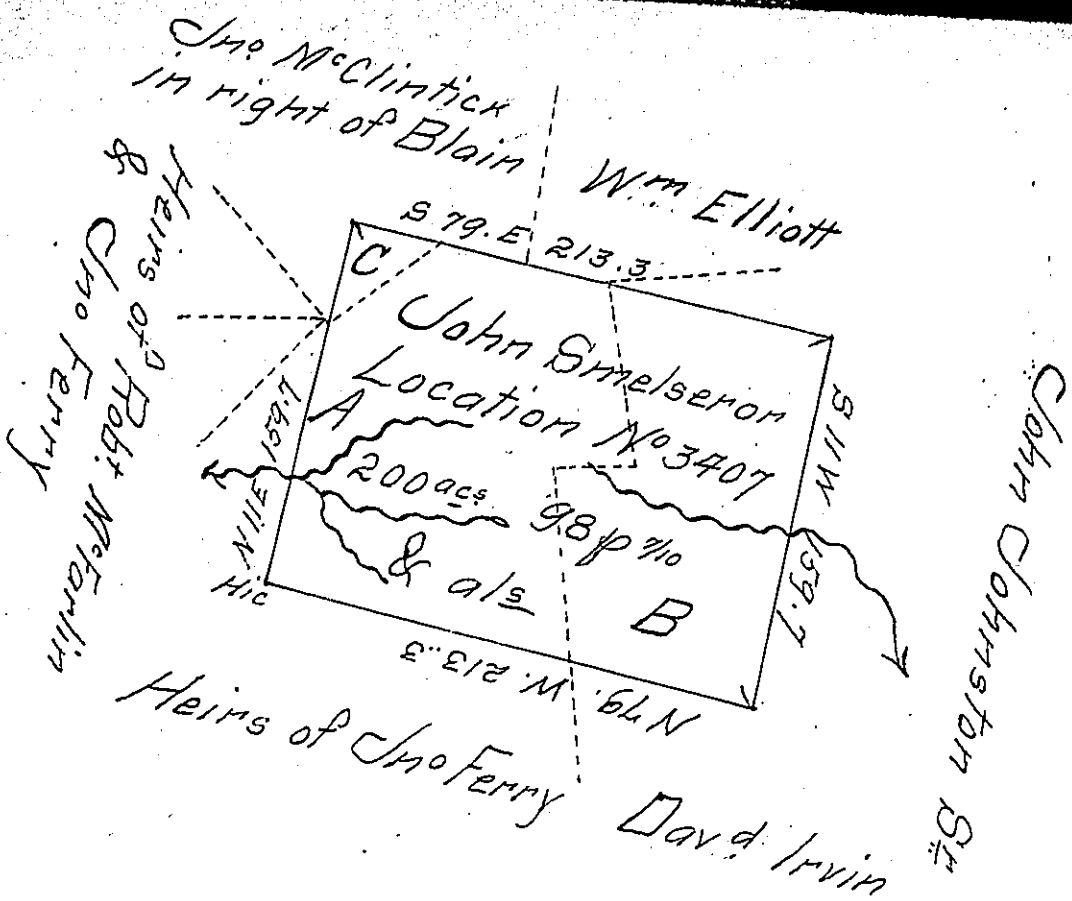 Jno McClintick
in right of Blain
Wm Elliott
Heirs of Robt McFarlin
&
Jno Ferry
S 79. E 213.3
C
John Smelseror
Location No 3407
A
200 acs 98 p 7/10
& als
B
S 11 W 159.7
N 11 E 159.7
Hic
N 79. W. 213..3
John Johnston Sr
Heirs of Jno Ferry
Davd Irvin